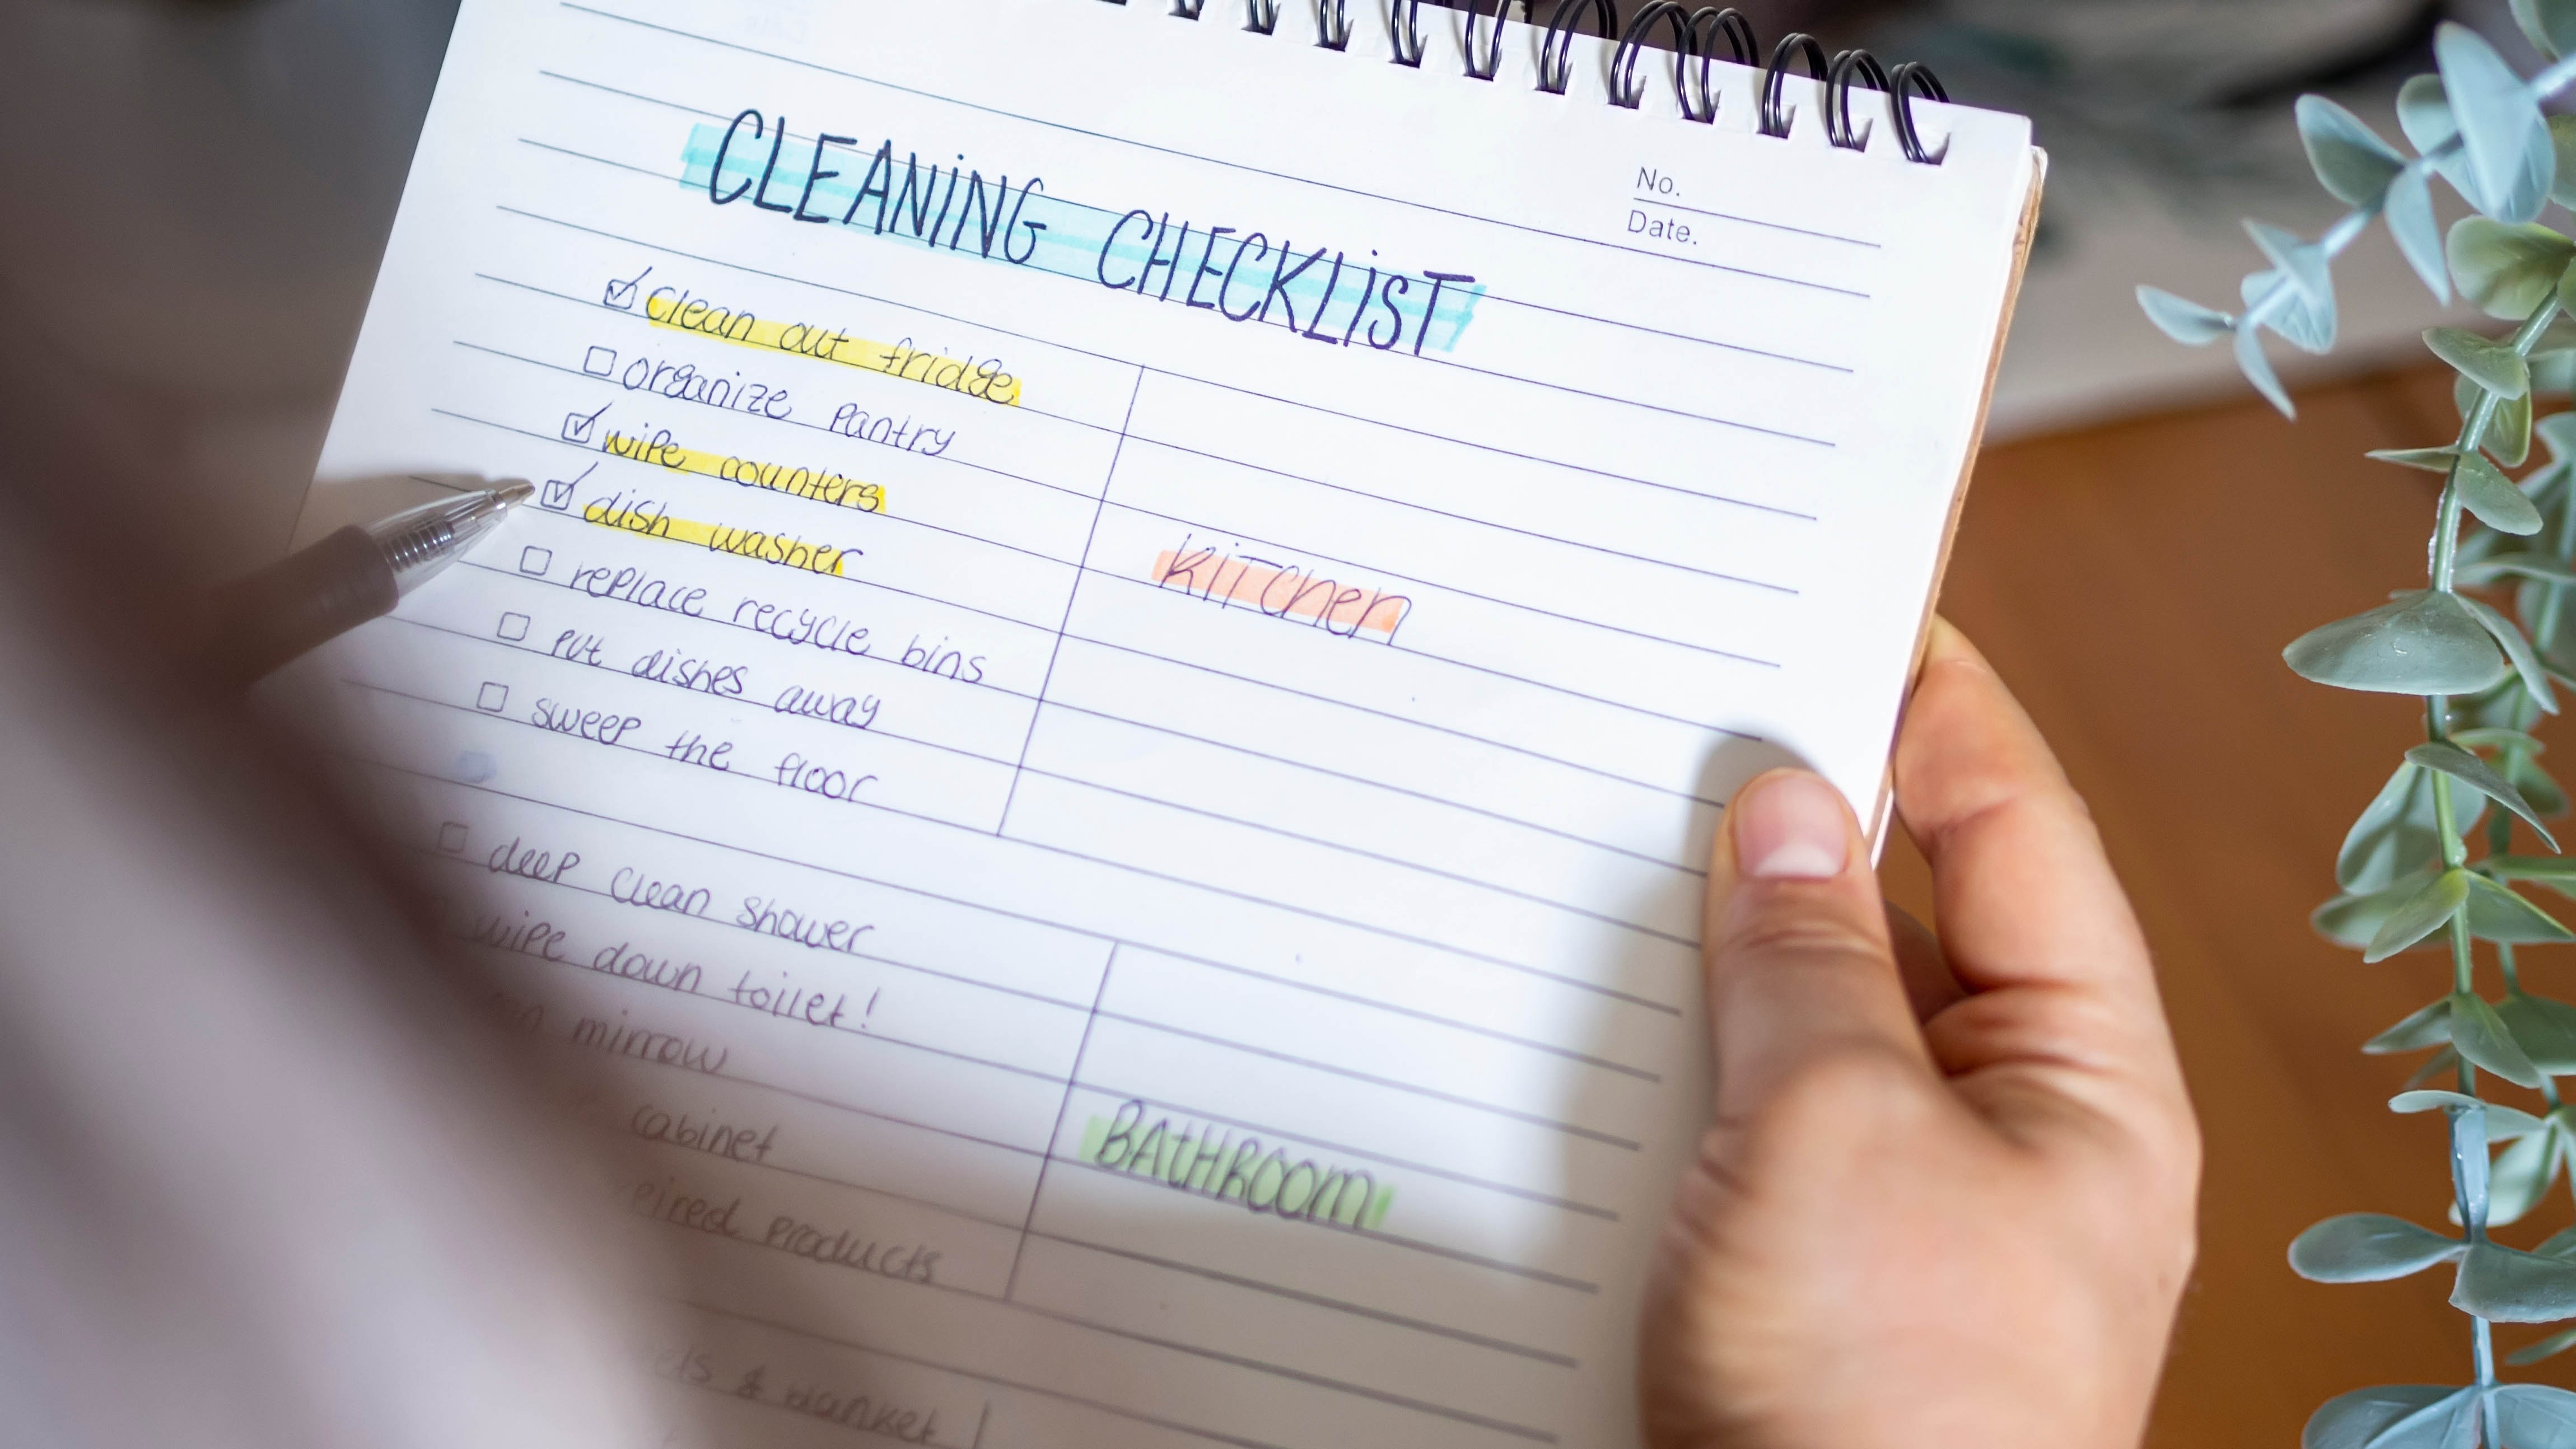 No.
Date.
CLEANING CHECKLIST
clean out fridge
organize pantry
wipe counters
dish washer
replace recycle bins
put dishes away
sweep the floor
KITCHEN
deep clean shower
wipe down toilet!
mirrow
cabinet
products
BATHROOM
&